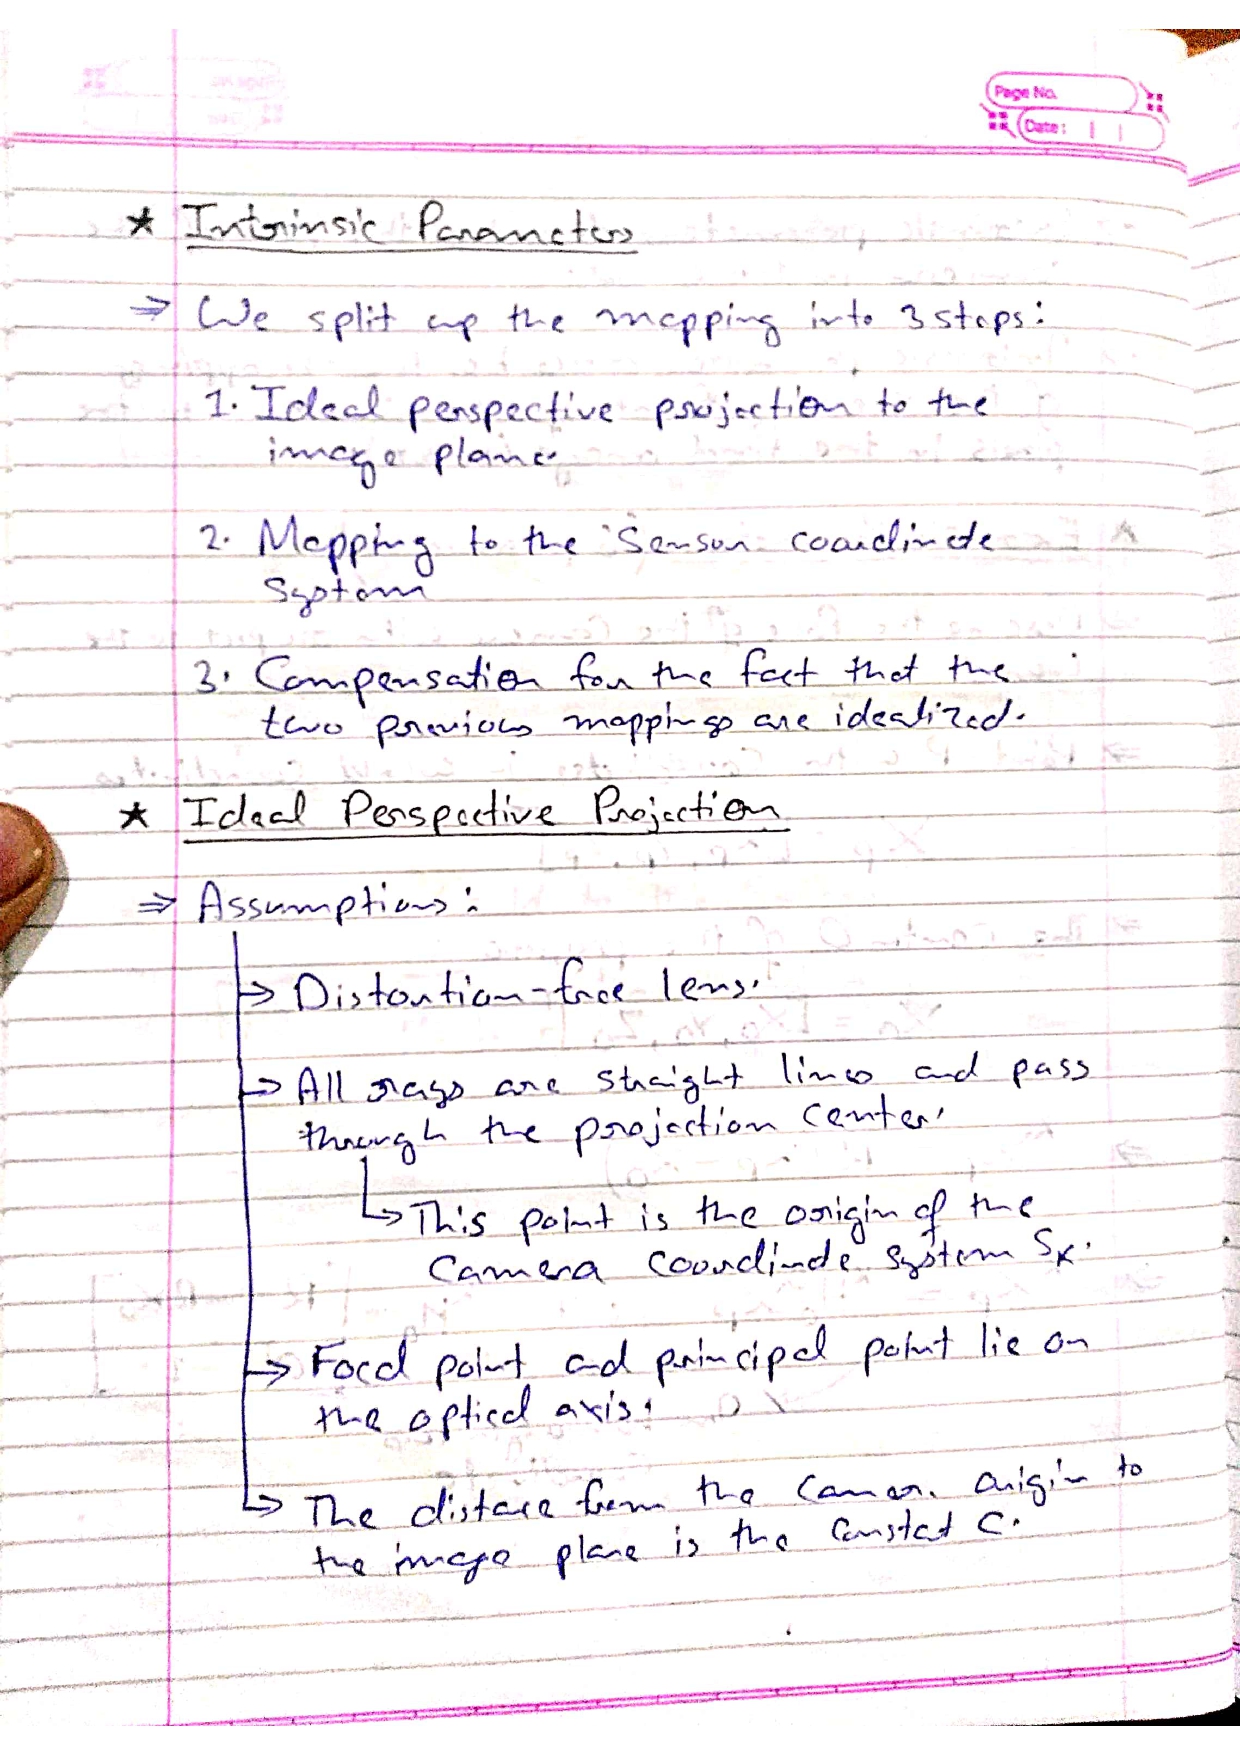 Page No.
Date:
★ Intrinsic Parameters
⇒ We split up the mapping into 3 steps:
1. Ideal perspective projection to the
image plane.
2. Mapping to the Sensor coordinate
System
3. Compensation for the fact that the
two previous mappings are idealized.
★ Ideal Perspective Projection
⇒ Assumptions:
→ Distortion-free lens.
→ All rays are straight lines and pass
through the projection center.
→ This point is the origin of the
Camera coordinate system Sk.
→ Focal point and principal point lie on
the optical axis.
→ The distance from the camera origin to
the image plane is the constant C.